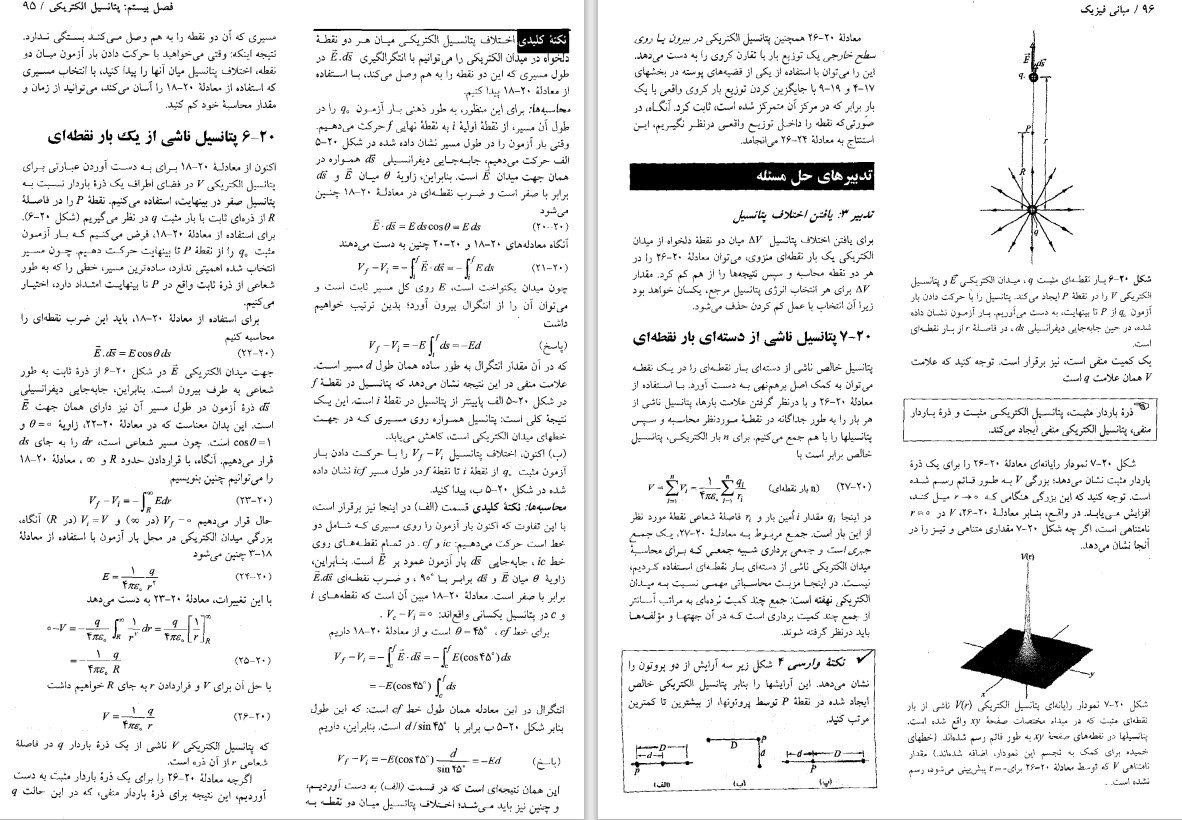 فصل بیستم: پتانسیل الکتریکی / ۹۵
نکتهٔ کلیدی اختلاف پتانسیل الکتریکی میان هر دو نقطهٔ
دلخواه در میدان الکتریکی را می‌توانیم با انتگرالگیری E⃗.ds⃗ در
طول مسیری که این دو نقطه را به هم وصل می‌کند، با استفاده
از معادلهٔ ۲۰-۱۸ پیدا کنیم.
محاسبه‌ها: برای این منظور، به طور ذهنی بار آزمون q₀ را در
طول آن مسیر، از نقطهٔ اولیهٔ i به نقطهٔ نهایی f حرکت می‌دهیم.
وقتی بار آزمون را در طول مسیر نشان داده شده در شکل ۲۰-۵
الف حرکت می‌دهیم، جابه‌جایی دیفرانسیلی ds⃗ همواره در
همان جهت میدان E⃗ است. بنابراین، زاویهٔ θ میان E⃗ و ds⃗
برابر با صفر است و ضرب نقطه‌ای در معادلهٔ ۲۰-۱۸ چنین
می‌شود
E⃗.ds⃗ = E ds cosθ = E ds (۲۰-۲۰)
آنگاه معادله‌های ۲۰-۱۸ و ۲۰-۲۰ چنین به دست می‌دهند
V_f − V_i = −∫_i^f E⃗.ds⃗ = −∫_i^f E ds (۲۰-۲۱)
چون میدان یکنواخت است، E روی کل مسیر ثابت است و
می‌توان آن را از انتگرال بیرون آورد؛ بدین ترتیب خواهیم
داشت
V_f − V_i = −E ∫_i^f ds = −Ed (پاسخ)
که در آن مقدار انتگرال به طور ساده همان طول d مسیر است.
علامت منفی در این نتیجه نشان می‌دهد که پتانسیل در نقطهٔ f
در شکل ۲۰-۵ الف پایینتر از پتانسیل در نقطهٔ i است. این یک
نتیجهٔ کلی است: پتانسیل همواره روی مسیری که در جهت
خطهای میدان الکتریکی است، کاهش می‌یابد.
(ب) اکنون، اختلاف پتانسیل V_f − V_i را با حرکت دادن بار
آزمون مثبت q₀ از نقطهٔ i تا نقطهٔ f در طول مسیر icf نشان داده
شده در شکل ۲۰-۵ ب، پیدا کنید.
محاسبه‌ها: نکتهٔ کلیدی قسمت (الف) در اینجا نیز برقرار است،
با این تفاوت که اکنون بار آزمون را روی مسیری که شامل دو
خط است حرکت می‌دهیم: ic و cf. در تمام نقطه‌های روی
خط ic، جابه‌جایی ds⃗ بار آزمون عمود بر E⃗ است. بنابراین،
زاویهٔ θ میان E⃗ و ds⃗ برابر با ۹۰°، و ضرب نقطه‌ای E⃗.ds⃗
برابر با صفر است. معادلهٔ ۲۰-۱۸ مبین آن است که نقطه‌های i
و c در پتانسیل یکسانی واقع‌اند: V_c − V_i = ۰.
برای خط cf، θ = ۴۵° است و از معادلهٔ ۲۰-۱۸ داریم
V_f − V_i = −∫_c^f E⃗.ds⃗ = −∫_c^f E(cos۴۵°)ds
= −E(cos۴۵°) ∫_c^f ds
انتگرال در این معادله همان طول خط cf است: که این طول
بنابر شکل ۲۰-۵ ب برابر با d/sin۴۵° است. بنابراین، داریم
V_f − V_i = −E(cos۴۵°) d/sin۴۵° = −Ed (پاسخ)
این همان نتیجه‌ای است که در قسمت (الف) به دست آوردیم،
و چنین نیز باید می‌شد؛ اختلاف پتانسیل میان دو نقطه به
مسیری که آن دو نقطه را به هم وصل می‌کند بستگی ندارد.
نتیجه اینکه: وقتی می‌خواهید با حرکت دادن بار آزمون میان دو
نقطه، اختلاف پتانسیل میان آنها را پیدا کنید، با انتخاب مسیری
که استفاده از معادلهٔ ۲۰-۱۸ را آسان می‌کند، می‌توانید از زمان و
مقدار محاسبهٔ خود کم کنید.
۲۰-۶ پتانسیل ناشی از یک بار نقطه‌ای
اکنون از معادلهٔ ۲۰-۱۸ برای به دست آوردن عبارتی برای
پتانسیل الکتریکی V در فضای اطراف یک ذرهٔ باردار نسبت به
پتانسیل صفر در بینهایت، استفاده می‌کنیم. نقطهٔ P را در فاصلهٔ
R از ذره‌ای ثابت با بار مثبت q در نظر می‌گیریم (شکل ۲۰-۶).
برای استفاده از معادلهٔ ۲۰-۱۸، فرض می‌کنیم که بار آزمون
مثبت q₀ را از نقطهٔ P تا بینهایت حرکت دهیم. چون مسیر
انتخاب شده اهمیتی ندارد، ساده‌ترین مسیر، خطی را که به طور
شعاعی از ذرهٔ ثابت واقع در P تا بینهایت امتداد دارد، اختیار
می‌کنیم.
برای استفاده از معادلهٔ ۲۰-۱۸، باید این ضرب نقطه‌ای را
محاسبه کنیم
E⃗.ds⃗ = E cosθ ds (۲۰-۲۲)
جهت میدان الکتریکی E⃗ در شکل ۲۰-۶ از ذرهٔ ثابت به طور
شعاعی به طرف بیرون است. بنابراین، جابه‌جایی دیفرانسیلی
ds⃗ ذرهٔ آزمون در طول مسیر آن نیز دارای همان جهت E⃗
است. این بدان معناست که در معادلهٔ ۲۰-۲۲، زاویهٔ θ = ۰ و
cosθ = ۱ است. چون مسیر شعاعی است، dr را به جای ds
قرار می‌دهیم. آنگاه، با قراردادن حدود R و ∞، معادلهٔ ۲۰-۱۸
را می‌توانیم چنین بنویسیم
V_f − V_i = −∫_R^∞ E dr (۲۰-۲۳)
حال قرار می‌دهیم V_f = ۰ (در ∞) و V_i = V (در R) آنگاه،
بزرگی میدان الکتریکی در محل بار آزمون با استفاده از معادلهٔ
۱۸-۳ چنین می‌شود
E = ۱/۴πε₀ q/r² (۲۰-۲۴)
با این تغییرات، معادلهٔ ۲۰-۲۳ به دست می‌دهد
۰ − V = −q/۴πε₀ ∫_R^∞ ۱/r² dr = q/۴πε₀ [۱/r]_R^∞
= −۱/۴πε₀ q/R (۲۰-۲۵)
با حل آن برای V و قراردادن r به جای R خواهیم داشت
V = ۱/۴πε₀ q/r (۲۰-۲۶)
که پتانسیل الکتریکی V ناشی از یک ذرهٔ باردار q در فاصلهٔ
شعاعی r از آن ذره است.
اگرچه معادلهٔ ۲۰-۲۶ را برای یک ذرهٔ باردار مثبت به دست
آوردیم، این نتیجه برای ذرهٔ باردار منفی، که در این حالت q
۹۶ / مبانی فیزیک
E⃗
ds⃗
q₀
P
r
R
q
شکل ۲۰-۶ بار نقطه‌ای مثبت q، میدان الکتریکی E⃗ و پتانسیل
الکتریکی V را در نقطهٔ P ایجاد می‌کند. پتانسیل را با حرکت دادن بار
آزمون q₀ از P تا بینهایت، به دست می‌آوریم. بار آزمون نشان داده
شده، در حین جابه‌جایی دیفرانسیلی ds⃗، در فاصلهٔ r از بار نقطه‌ای
است.
یک کمیت منفی است، نیز برقرار است. توجه کنید که علامت
V همان علامت q است
ذرهٔ باردار مثبت، پتانسیل الکتریکی مثبت و ذرهٔ باردار
منفی، پتانسیل الکتریکی منفی ایجاد می‌کند.
شکل ۲۰-۷ نمودار رایانه‌ای معادلهٔ ۲۰-۲۶ را برای یک ذرهٔ
باردار مثبت نشان می‌دهد؛ بزرگی V به طور قائم رسم شده
است. توجه کنید که این بزرگی هنگامی که r → ۰ میل کند،
افزایش می‌یابد. در واقع، بنابر معادلهٔ ۲۰-۲۶، V در r = ۰
نامتناهی است، اگر چه شکل ۲۰-۷ مقداری متناهی و تیز را در
آنجا نشان می‌دهد.
V(r)
x
y
شکل ۲۰-۷ نمودار رایانه‌ای پتانسیل الکتریکی V(r) ناشی از بار
نقطه‌ای مثبت که در مبداء مختصات صفحهٔ xy واقع شده است.
پتانسیلها در نقطه‌های صفحهٔ xy به طور قائم رسم شده‌اند. (خطهای
خمیده برای کمک به تجسم این نمودار، اضافه شده‌اند.) مقدار
نامتناهی V که توسط معادلهٔ ۲۰-۲۶ برای r = ۰ پیش‌بینی می‌شود، رسم
نشده است.
معادلهٔ ۲۰-۲۶ همچنین پتانسیل الکتریکی در بیرون یا روی
سطح خارجی یک توزیع بار با تقارن کروی را به دست می‌دهد.
این را می‌توان با استفاده از یکی از قضیه‌های پوسته در بخشهای
۱۷-۴ و ۱۹-۹ با جایگزین کردن توزیع بار کروی واقعی با یک
بار برابر که در مرکز آن متمرکز شده است، ثابت کرد. آنگاه، در
صورتی‌که نقطه را داخل توزیع واقعی درنظر نگیریم، این
استنتاج به معادلهٔ ۲۴-۲۶ می‌انجامد.
تدبیرهای حل مسئله
تدبیر ۳: یافتن اختلاف پتانسیل
برای یافتن اختلاف پتانسیل ΔV میان دو نقطهٔ دلخواه از میدان
الکتریکی یک بار نقطه‌ای منزوی، می‌توان معادلهٔ ۲۰-۲۶ را در
هر دو نقطه محاسبه و سپس نتیجه‌ها را از هم کم کرد. مقدار
ΔV برای هر انتخاب انرژی پتانسیل مرجع، یکسان خواهد بود
زیرا آن انتخاب با عمل کم کردن حذف می‌شود.
۲۰-۷ پتانسیل ناشی از دسته‌ای بار نقطه‌ای
پتانسیل خالص ناشی از دسته‌ای بار نقطه‌ای را در یک نقطه
می‌توان به کمک اصل برهم‌نهی به دست آورد. با استفاده از
معادلهٔ ۲۰-۲۶ و با درنظر گرفتن علامت بارها، پتانسیل ناشی از
هر بار را به طور جداگانه در نقطهٔ موردنظر محاسبه و سپس
پتانسیلها را با هم جمع می‌کنیم. برای n بار الکتریکی، پتانسیل
خالص برابر است با
V = Σ_{i=۱}^n V_i = ۱/۴πε₀ Σ_{i=۱}^n q_i/r_i (n بار نقطه‌ای) (۲۰-۲۷)
در اینجا q_i مقدار i اُمین بار و r_i فاصلهٔ شعاعی نقطهٔ مورد نظر
از این بار است. جمع مربوط به معادلهٔ ۲۰-۲۷، یک جمع
جبری است و جمعی برداری شبیه جمعی که برای محاسبهٔ
میدان الکتریکی ناشی از دسته‌ای بار نقطه‌ای استفاده کردیم،
نیست. در اینجا مزیت محاسباتی مهمی نسبت به میدان
الکتریکی نهفته است: جمع چند کمیت نرده‌ای به مراتب آسانتر
از جمع چند کمیت برداری است که در آن جهتها و مؤلفه‌ها
باید درنظر گرفته شوند.
✓ نکتهٔ وارسی ۴ شکل زیر سه آرایش از دو پروتون را
نشان می‌دهد. این آرایشها را بنابر پتانسیل الکتریکی خالص
ایجاد شده در نقطهٔ P توسط پروتونها، از بیشترین تا کمترین
مرتب کنید.
D
d
P
(الف)
D
d
P
(ب)
d
D
P
(پ)